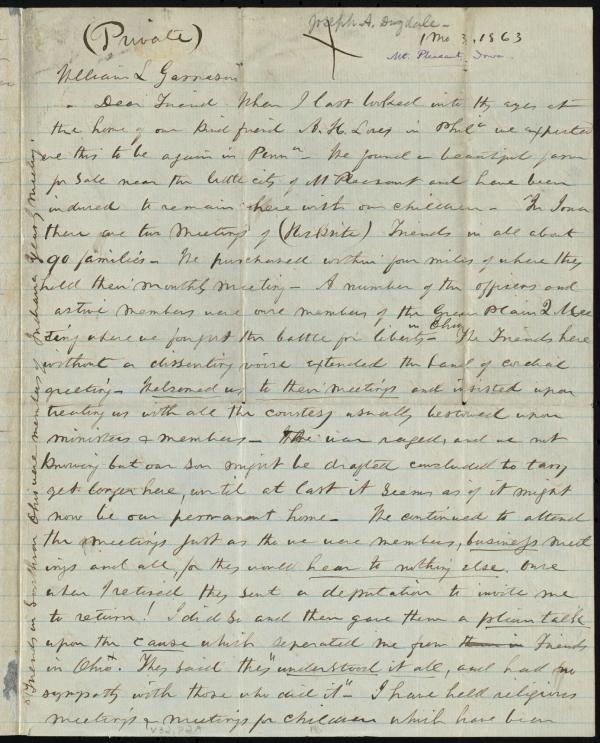 Joseph A. Dugdale -
(Private)
1 Mo 3, 1863
Mt. Pleasant, Iowa
William L Garrison
Dear Friend When I last looked into thy eyes at
the home of our kind friend A. H. Love in Phila we expected
ere this to be again in Penna - We found a beautiful farm
for sale near the little city of Mt Pleasant and have been
induced to remain here with our children - In Iowa
there are two Meetings of (Hicksite) Friends in all about
90 families - We purchased within four miles of where they
hold their monthly meeting - A number of the officers and
active members were once members of the Green Plain Q Mee
ting where we fought the battle for liberty in Ohio - The Friends here
without a dissenting voice extended the hand of cordial
greeting - Welcomed us to their meetings and insisted upon
treating us with all the courtesy usually bestowed upon
ministers & members - The war raged, and we not
knowing but our Son might be drafted concluded to tarry
yet longer here, until at last it seems as if it might
now be our permanent home - We continued to attend
the meetings just as tho we were members, business meet
ings and all, for they would hear to nothing else. Once
when I retired they sent a deputation to invite me
to return! I did so and then gave them a plain talk
upon the cause which seperated me from Friends
in Ohio. + They said they "understood it all, and had no
sympathy with those who did it" - I have held religious
meetings & meetings for children which have been
+ Friends in Southern Ohio were members of Indiana Yearly Meeting.
V32, P2A